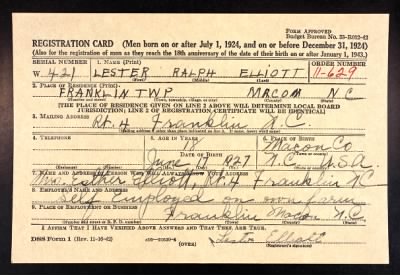 FORM APPROVED
Budget Bureau No. 33-R012-42
REGISTRATION CARD (Men born on or after July 1, 1924, and on or before December 31, 1924)
(Also for the registration of men as they reach the 18th anniversary of the date of their birth on or after January 1, 1943.)
SERIAL NUMBER 1. NAME (Print) ORDER NUMBER
W 421 LESTER RALPH ELLIOTT 11-629
(First) (Middle) (Last)
2. PLACE OF RESIDENCE (Print)
FRANKLIN TWP MACON NC
(Number and street) (Town, township, village, or city) (County) (State)
[THE PLACE OF RESIDENCE GIVEN ON LINE 2 ABOVE WILL DETERMINE LOCAL BOARD
JURISDICTION; LINE 2 OF REGISTRATION CERTIFICATE WILL BE IDENTICAL]
3. MAILING ADDRESS
Rt. 4 Franklin N.C.
(Mailing address if other than place indicated on line 2. If same, insert word same)
4. TELEPHONE 5. AGE IN YEARS 6. PLACE OF BIRTH
Macon Co
DATE OF BIRTH (Town or county)
June 1927 N.C. USA
(Exchange) (Number) (Mo.) (Day) (Yr.) (State or country)
7. NAME AND ADDRESS OF PERSON WHO WILL ALWAYS KNOW YOUR ADDRESS
Mrs. Esther Elliott, Rt. 4 Franklin NC
8. EMPLOYER'S NAME AND ADDRESS
Self Employed on own farm
9. PLACE OF EMPLOYMENT OR BUSINESS
Franklin Macon N.C.
(Number and street or R. F. D. number) (Town) (County) (State)
I AFFIRM THAT I HAVE VERIFIED ABOVE ANSWERS AND THAT THEY ARE TRUE.
Lester Elliott
DSS Form 1 (Rev. 11-16-42) (OVER) (Registrant's signature)